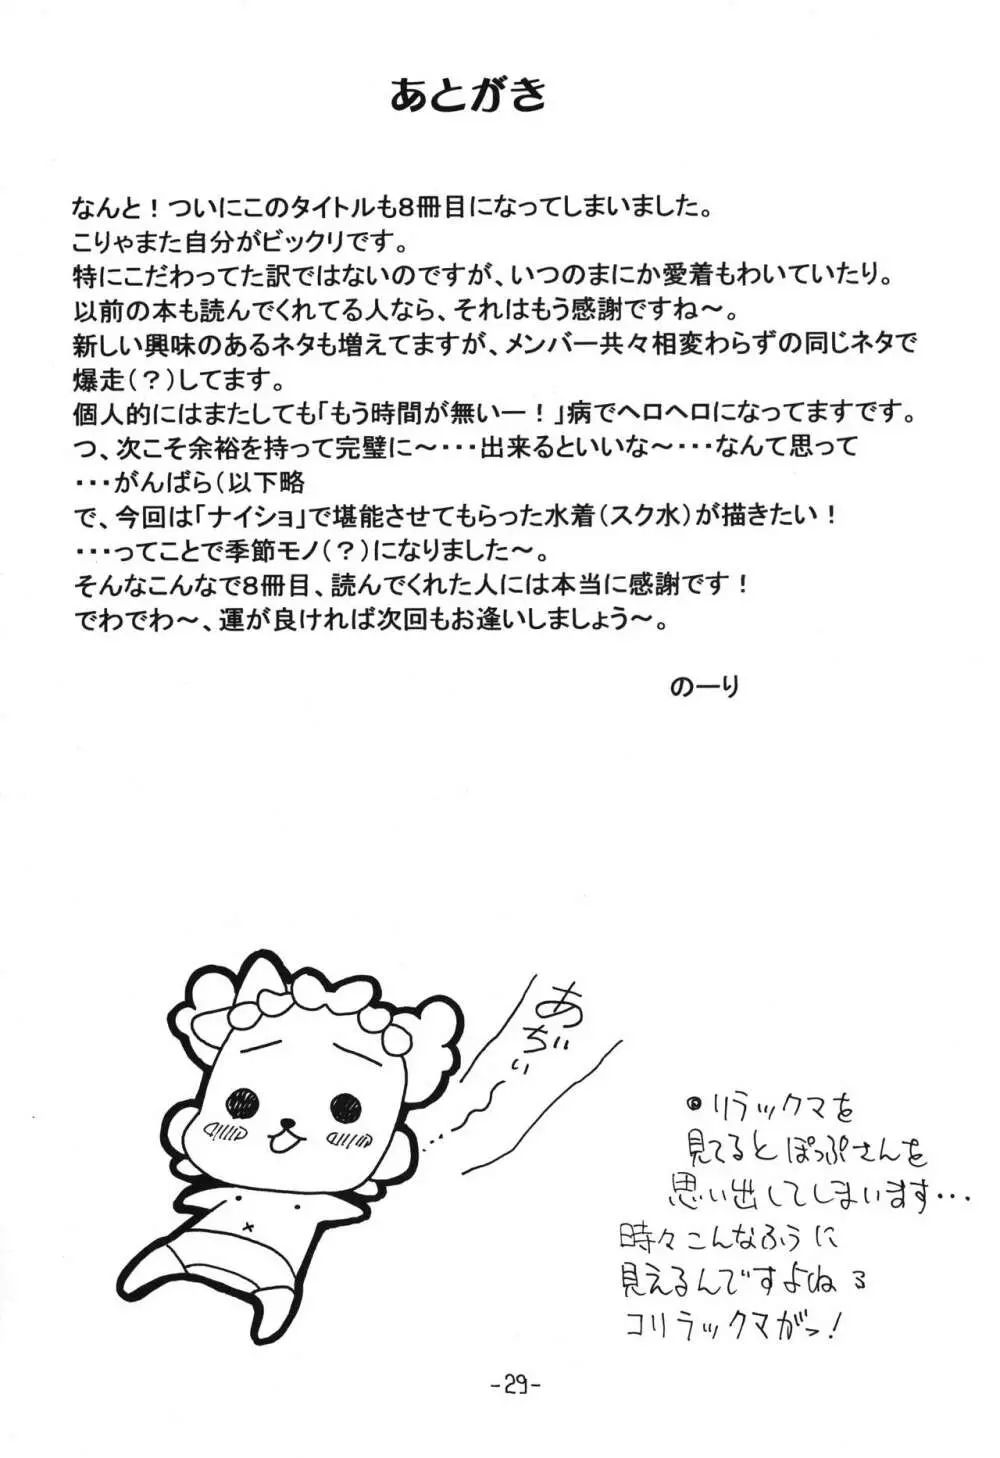 あとがき
なんと！ついにこのタイトルも８冊目になってしまいました。
こりゃまた自分がビックリです。
特にこだわってた訳ではないのですが、いつのまにか愛着もわいていたり。
以前の本も読んでくれてる人なら、それはもう感謝ですね～。
新しい興味のあるネタも増えてますが、メンバー共々相変わらずの同じネタで
爆走（？）してます。
個人的にはまたしても「もう時間が無いー！」病でヘロヘロになってますです。
つ、次こそ余裕を持って完璧に～・・・出来るといいな～・・・なんて思って
・・・がんばら（以下略
で、今回は「ナイショ」で堪能させてもらった水着（スク水）が描きたい！
・・・ってことで季節モノ（？）になりました～。
そんなこんなで８冊目、読んでくれた人には本当に感謝です！
でわでわ～、運が良ければ次回もお逢いしましょう～。
のーり
あぢぃぃ
リラックマを
見てるとぽっぷさんを
思い出してしまいます・・・
時々こんなふうに
見えるんですよねぇ
コリラックマがっ！
-29-